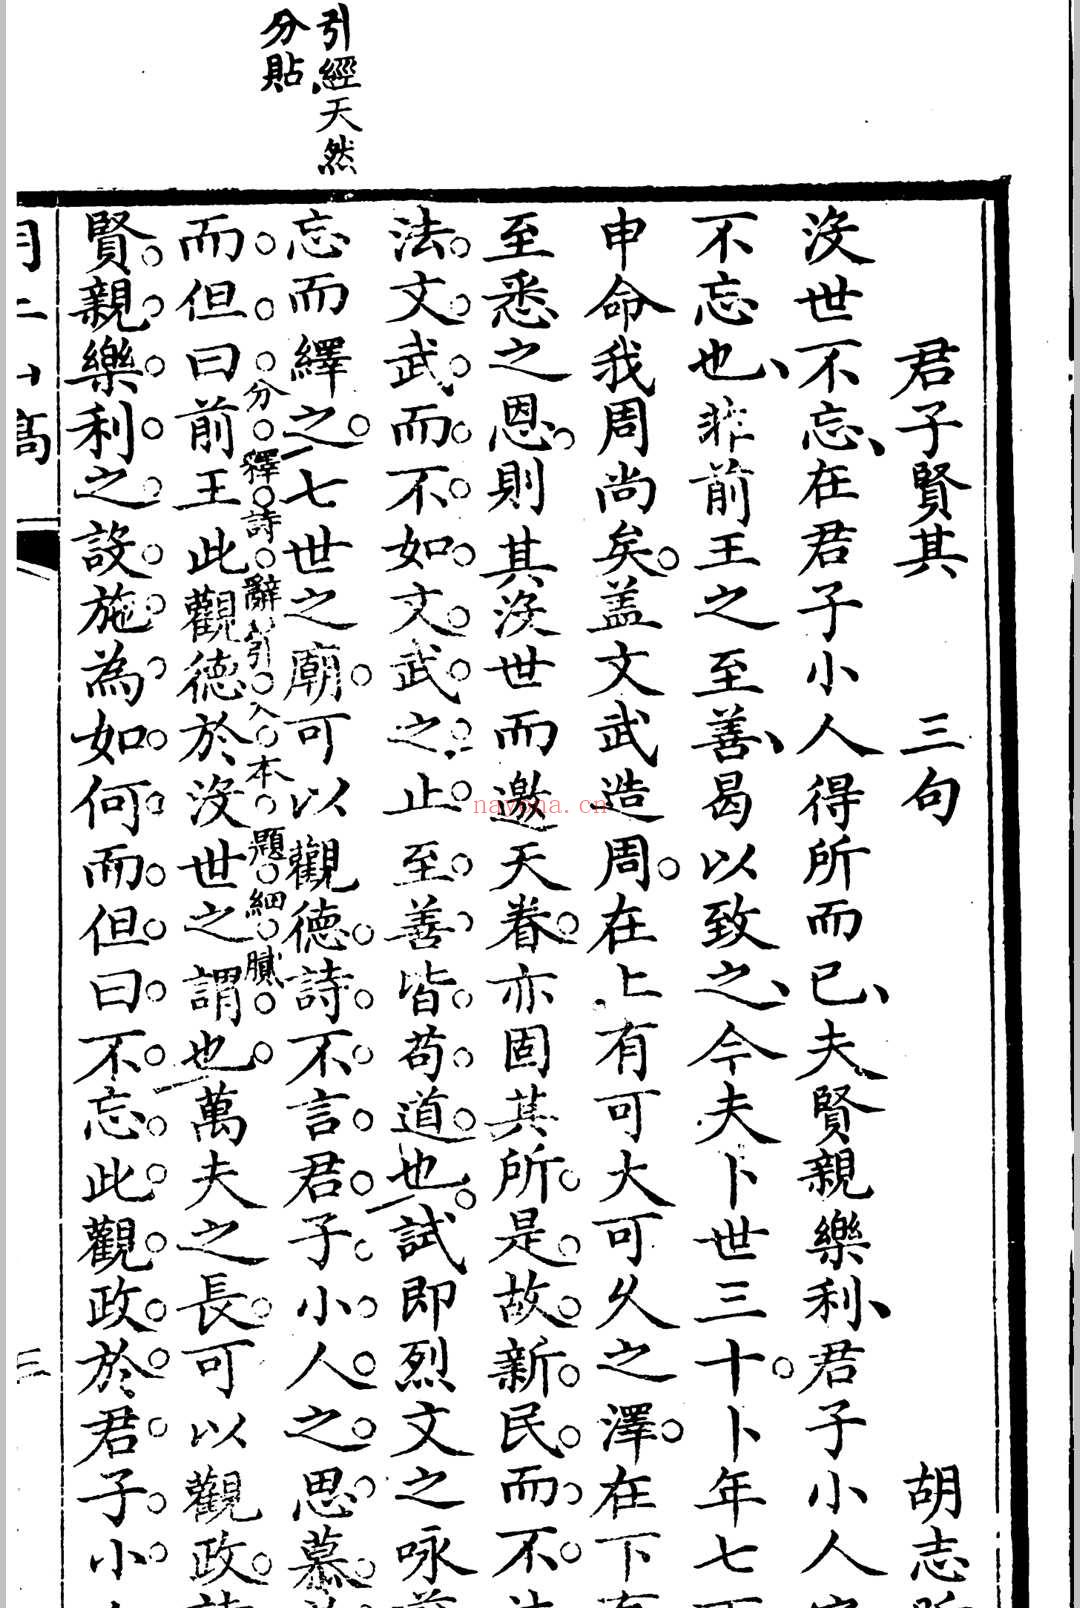 引經天然
分貼
君子賢其 三句 胡志
沒世不忘在君子小人得所而已夫賢親樂利君子小人
不忘也非前王之至善曷以致之今夫卜世三十卜年七
申命我周尚矣盖文武造周在上有可大可久之澤在下
至悉之恩則其沒世而邀天眷亦固其所是故新民而不
法文武而不如文武之止至善皆苟道也試即烈文之咏
忘而繹之七世之廟可以觀德詩不言君子小人之思慕
分釋詩辭引入本題細膩
而但曰前王此觀德於沒世之謂也萬夫之長可以觀政
賢親樂利之設施為如何而但曰不忘此觀政於君子小
三
nayona.cn